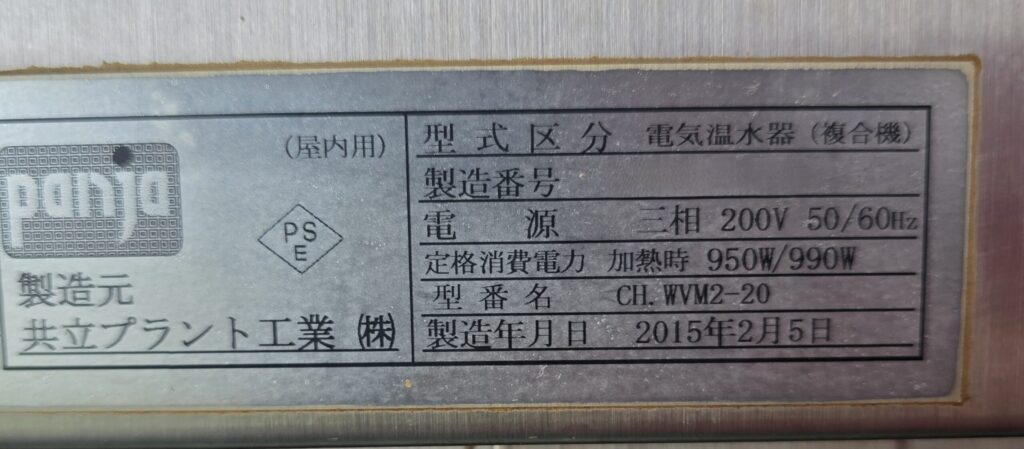 panja
(屋内用)
PS
E
製造元
共立プラント工業(株)
型式区分 電気温水器(複合機)
製造番号
電源 三相 200V 50/60Hz
定格消費電力 加熱時 950W/990W
型番名 CH.WVM2-20
製造年月日 2015年2月5日